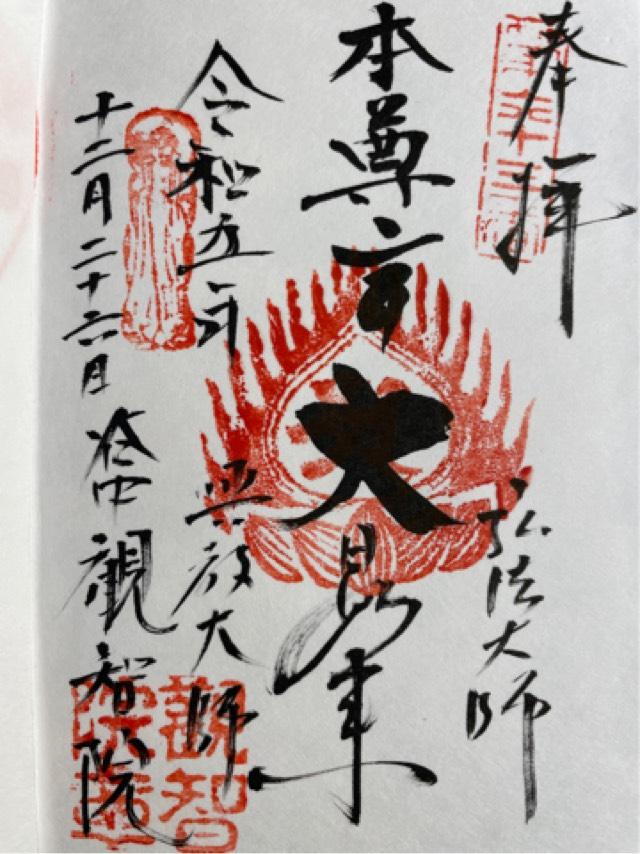 奉拝
弘法大師
本尊
大日如来
令和五年
興教大師
十二月二十六日
谷中 観智院
觀智